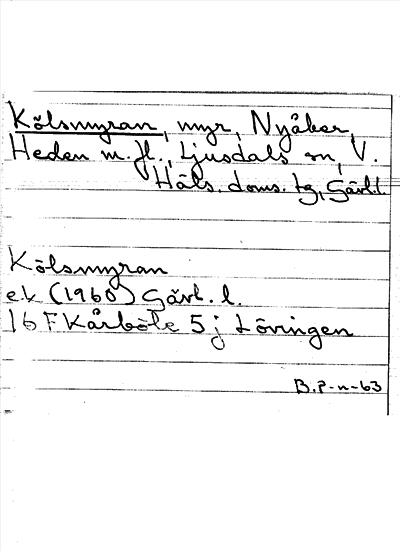 Kölsmyran, myr, Nyåker,
Heden m.fl., Ljusdals sn, V.
Häls. doms. tg, Gävl.l.
Kölsmyran
ek (1960) Gävl. l.
16 F Kårböle 5 j Lövingen
B.P-n-63